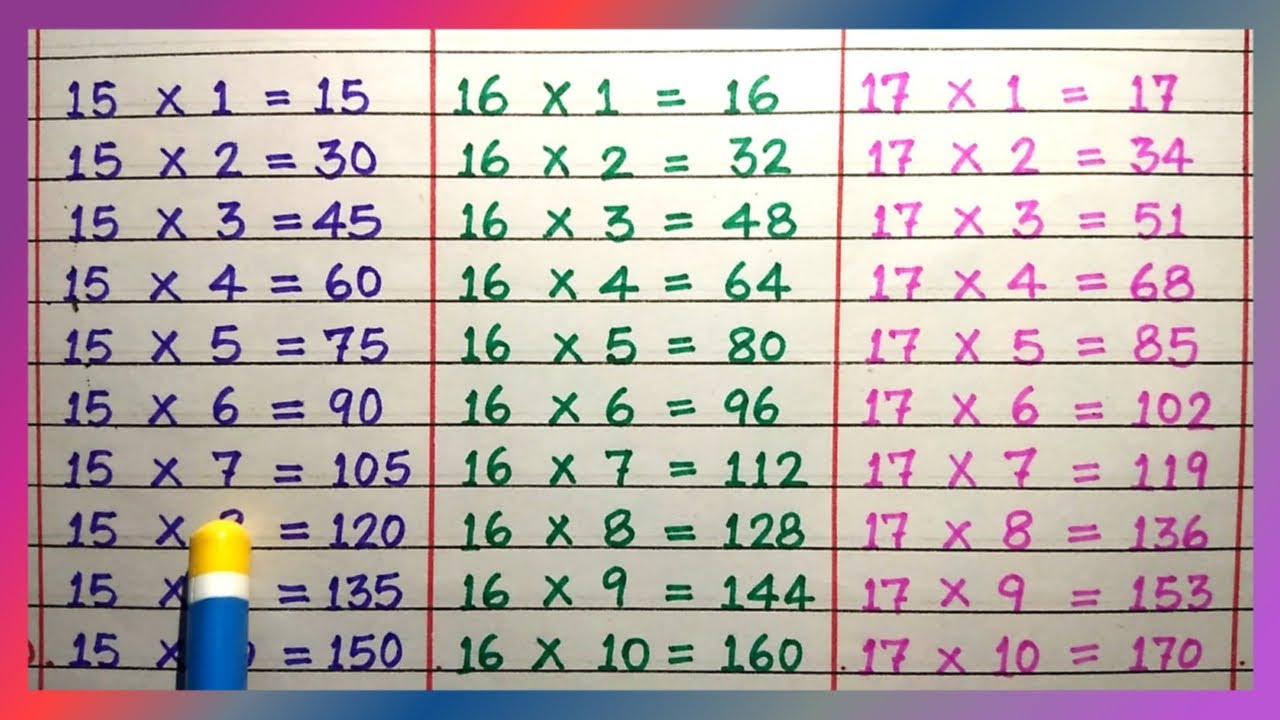 15 × 1 = 15
15 × 2 = 30
15 × 3 = 45
15 × 4 = 60
15 × 5 = 75
15 × 6 = 90
15 × 7 = 105
15 × = 120
15 × = 135
15 × = 150
16 × 1 = 16
16 × 2 = 32
16 × 3 = 48
16 × 4 = 64
16 × 5 = 80
16 × 6 = 96
16 × 7 = 112
16 × 8 = 128
16 × 9 = 144
16 × 10 = 160
17 × 1 = 17
17 × 2 = 34
17 × 3 = 51
17 × 4 = 68
17 × 5 = 85
17 × 6 = 102
17 × 7 = 119
17 × 8 = 136
17 × 9 = 153
17 × 10 = 170